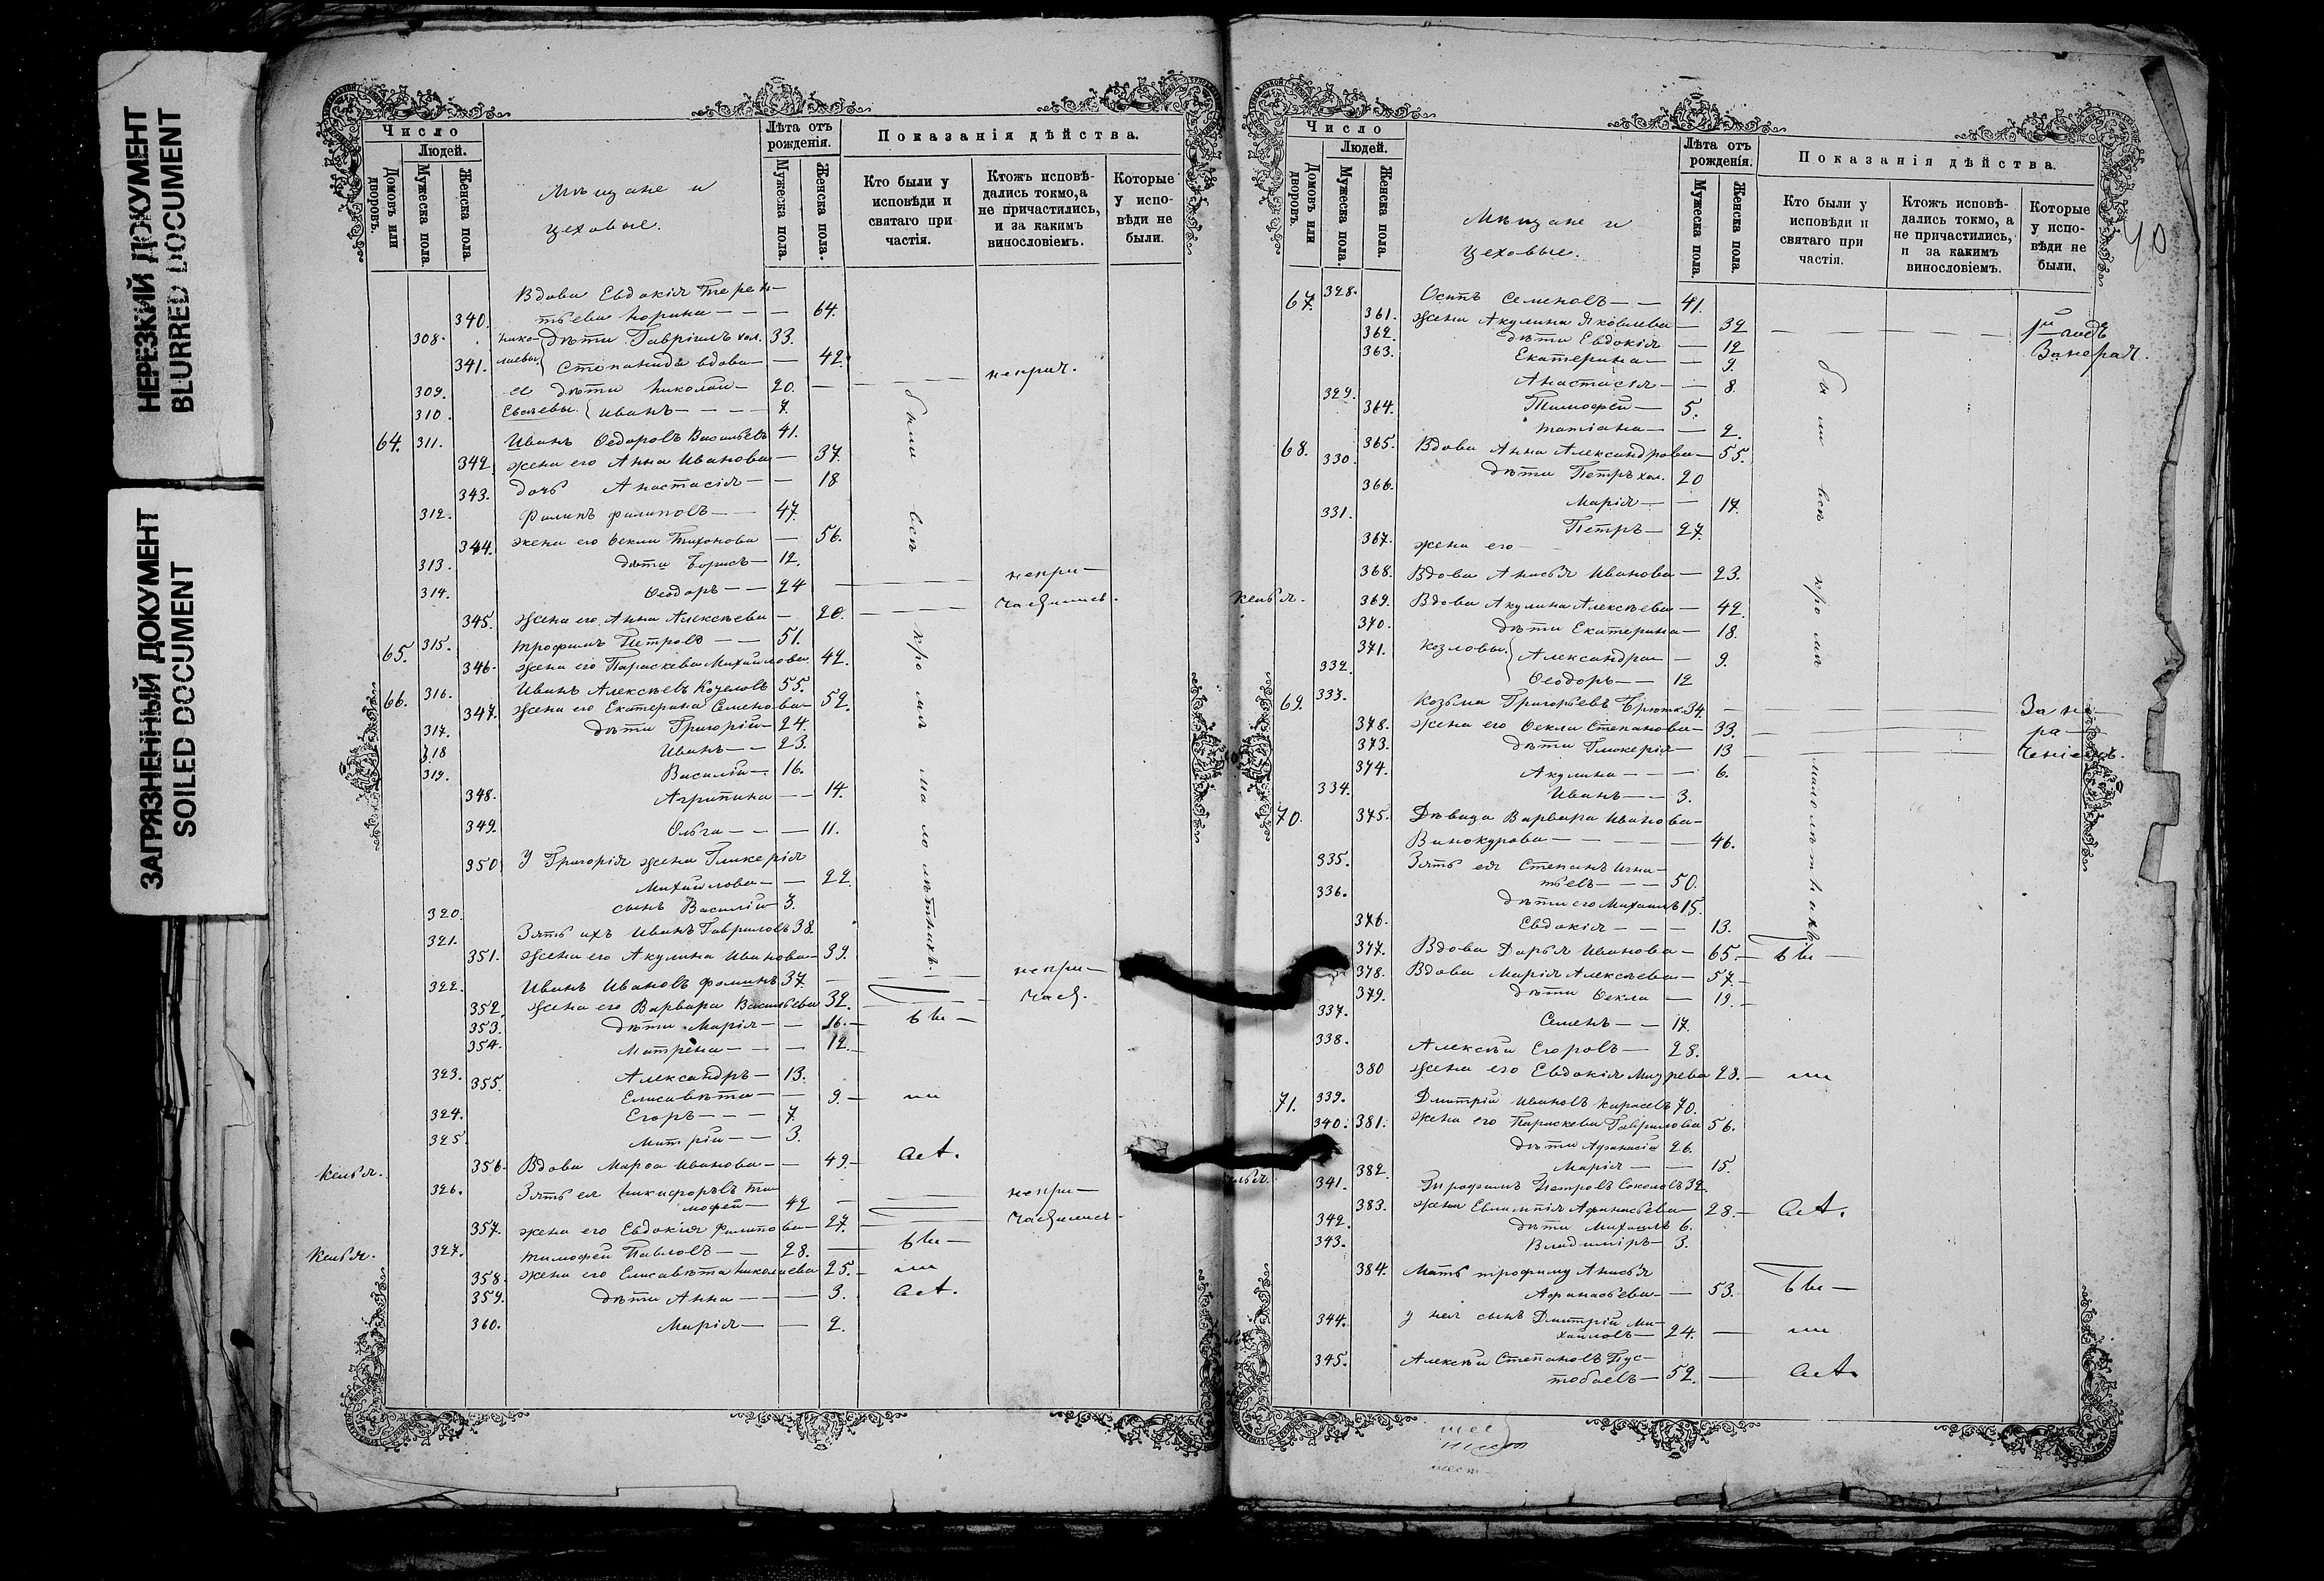 НЕРЕЗКИЙ ДОКУМЕНТ
BLURRED DOCUMENT
ЗАГРЯЗНЕННЫЙ ДОКУМЕНТ
SOILED DOCUMENT
Число
Людей.
Домовъ или дворовъ.
Мужеска пола.
Женска пола.
Мѣщане и
цеховые.
Лѣта отъ рожденія.
Мужеска пола.
Женска пола.
Показанія дѣйства.
Кто были у исповѣди и святаго при частія.
Ктожъ исповѣ-дались токмо, а не причастились, и за какимъ винословіемъ.
Которые у испо-вѣди не были.
Вдова Евдокія Терен-
340. тьева — — — 64.
308. Нико- дѣти Гавріилъ хол. 33.
341. лаевы Степанида вдова — — 42.
309. ея дѣти Николай — 20. — неприч.
310. Иванъ — — — 7.
64. 311. Иванъ Ѳедоровъ Васильевъ 41.
342. жена его Анна Иванова — 37.
343. дочь Анастасія — — 18
312. Филипъ Филиповъ — — 47.
344. жена его Ѳекла Тихонова — 56.
313. дѣти Борисъ — 12.
314. Ѳеодоръ — — 24 — непри-
345. жена его Анна Алексѣева — 20. — частились.
65. 315. Трофимъ Петровъ — — 51.
346. жена его Параскева Михайлова 42.
66. 316. Иванъ Алексѣевъ 55.
347. жена его Екатерина Семенова — 52.
317. дѣти Григорій — 24.
318 Иванъ — — 23.
319. Василій — 16.
348. Агрипина — — 14.
349. Ольга — — — 11.
350 У Григорія жена Гликерія
Михайлова — — 22.
320. сынъ Василій 3.
321. Зять ихъ Иванъ Гавриловъ 38.
351. жена его Акулина Иванова — 39.
322. Иванъ Ивановъ Фоминъ 37. — непри-
352. жена его Варвара Васильева 32. — част.
353. дѣти Марія — — 16. —
354. Матрена — — — 12. —
323. Александръ — 13.
355. Елисавѣта — — 9. —
324. Егоръ — — — 7.
325. Митрій — — 3.
Келья. 356. Вдова Марѳа Иванова — — 49. —
326. Зять ея Никифоръ Ти-
мофей — 42 — непри-
357. жена его Евдокія Филипова — 27. — частились.
Келья. 327. Тимофей Павловъ — — 28. —
358. жена его Елисавѣта Николаева 25. —
359. дѣти Анна — — — 3.
360. Марія — — 2.
были всѣ кромѣ малолѣтнихъ.
40
Число
Людей.
Домовъ или дворовъ.
Мужеска пола.
Женска пола.
Мѣщане и
цеховые.
Лѣта отъ рожденія.
Мужеска пола.
Женска пола.
Показанія дѣйства.
Кто были у исповѣди и святаго при частія.
Ктожъ исповѣ-дались токмо, а не причастились, и за какимъ винословіемъ.
Которые у испо-вѣди не были.
67. 328. Осипъ Семеновъ — — 41.
361. жена Акулина Яковлева — 32
362. дѣти Евдокія — 12
363. Екатерина — — 9.
Анастасія — — 8.
329. 364. Тимофей — 5.
Татіана — — 2.
68. 365. Вдова Анна Александрова — 55.
330. дѣти Петръ хол. 20
366. Марія — — 17.
331. Петръ — 27.
367. жена его —
368. Вдова Анисья Иванова — 23.
Келья. 369. Вдова Акулина Алексѣева — 42.
370. дѣти Екатерина — 18.
371. Козловы. Александра — — 9.
332. Ѳеодоръ — — 12
69. 333. Козьма Григорьевъ 34. — За не-
378. жена его Ѳекла Степанова — 33. — ра-
373. дѣти Гликерія — 13 — ченіемъ.
374. Акулина — — — 6.
334. Иванъ — — 3.
70. 375. Дѣвица Варвара Иванова
Винокурова — — — — 46.
335. Зять ея Степанъ Игна-
тьевъ — — — 50.
336. дѣти его Михаилъ 15.
376. Евдокія — — — 13.
377. Вдова Дарья Иванова — 65. —
378. Вдова Марія Алексѣева — 57. —
379. дѣти Ѳекла — 19. —
337. Семенъ — — 17.
338. Алексѣй Егоровъ — 28.
380 жена его Евдокія 28. —
71. 339. Дмитрій Ивановъ Карасевъ 70.
340. 381. жена его Параскева Гаврилова 56.
дѣти Афанасій 26.
382. Марія — — 15.
341. Трофимъ Петровъ Соколовъ 32.
383. жена Евлампія Афанасьева — 28. —
342. дѣти Михаилъ 6.
343. Владиміръ — 3.
384. Мать Трофиму Анисья
Афанасьева — — 53. —
344. у нея сынъ Дмитрій Ми-
хайловъ — 24. —
345. Алексѣй Степановъ Пус-
тобаевъ — 52. —
были всѣ кромѣ малолѣтнихъ.